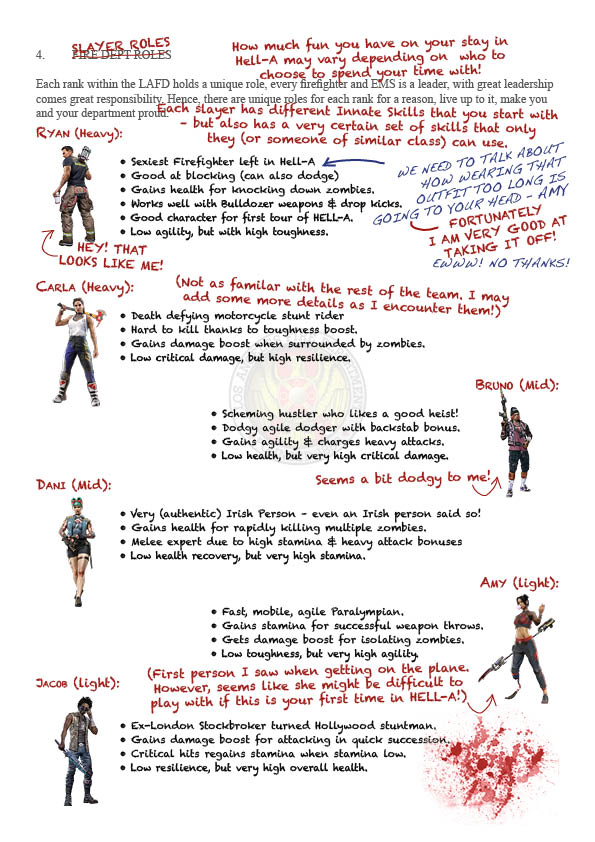 4. FIRE DEPT ROLES
SLAYER ROLES
How much fun you have on your stay in
Hell-A may vary depending on who to
choose to spend your time with!
Each rank within the LAFD holds a unique role, every firefighter and EMS is a leader, with great leadership
comes great responsibility. Hence, there are unique roles for each rank for a reason, live up to it, make you
and your department proud.
Each slayer has different Innate Skills that you start with
- but also has a very certain set of skills that only
they (or someone of similar class) can use.
Ryan (Heavy):
• Sexiest Firefighter left in Hell-A
• Good at blocking (can also dodge)
• Gains health for knocking down zombies.
• Works well with Bulldozer weapons & drop kicks.
• Good character for first tour of HELL-A.
• Low agility, but with high toughness.
WE NEED TO TALK ABOUT
HOW WEARING THAT
OUTFIT TOO LONG IS
GOING TO YOUR HEAD - AMY
FORTUNATELY
I AM VERY GOOD AT
TAKING IT OFF!
EWWW! NO THANKS!
HEY! THAT
LOOKS LIKE ME!
Carla (Heavy):
(Not as familar with the rest of the team. I may
add some more details as I encounter them!)
• Death defying motorcycle stunt rider
• Hard to kill thanks to toughness boost.
• Gains damage boost when surrounded by zombies.
• Low critical damage, but high resilience.
Bruno (Mid):
• Scheming hustler who likes a good heist!
• Dodgy agile dodger with backstab bonus.
• Gains agility & charges heavy attacks.
• Low health, but very high critical damage.
Seems a bit dodgy to me!
Dani (Mid):
• Very (authentic) Irish Person - even an Irish person said so!
• Gains health for rapidly killing multiple zombies.
• Melee expert due to high stamina & heavy attack bonuses
• Low health recovery, but very high stamina.
Amy (light):
• Fast, mobile, agile Paralympian.
• Gains stamina for successful weapon throws.
• Gets damage boost for isolating zombies.
• Low toughness, but very high agility.
(First person I saw when getting on the plane.
However, seems like she might be difficult to
play with if this is your first time in HELL-A!)
Jacob (light):
• Ex-London Stockbroker turned Hollywood stuntman.
• Gains damage boost for attacking in quick succession.
• Critical hits regains stamina when stamina low.
• Low resilience, but very high overall health.